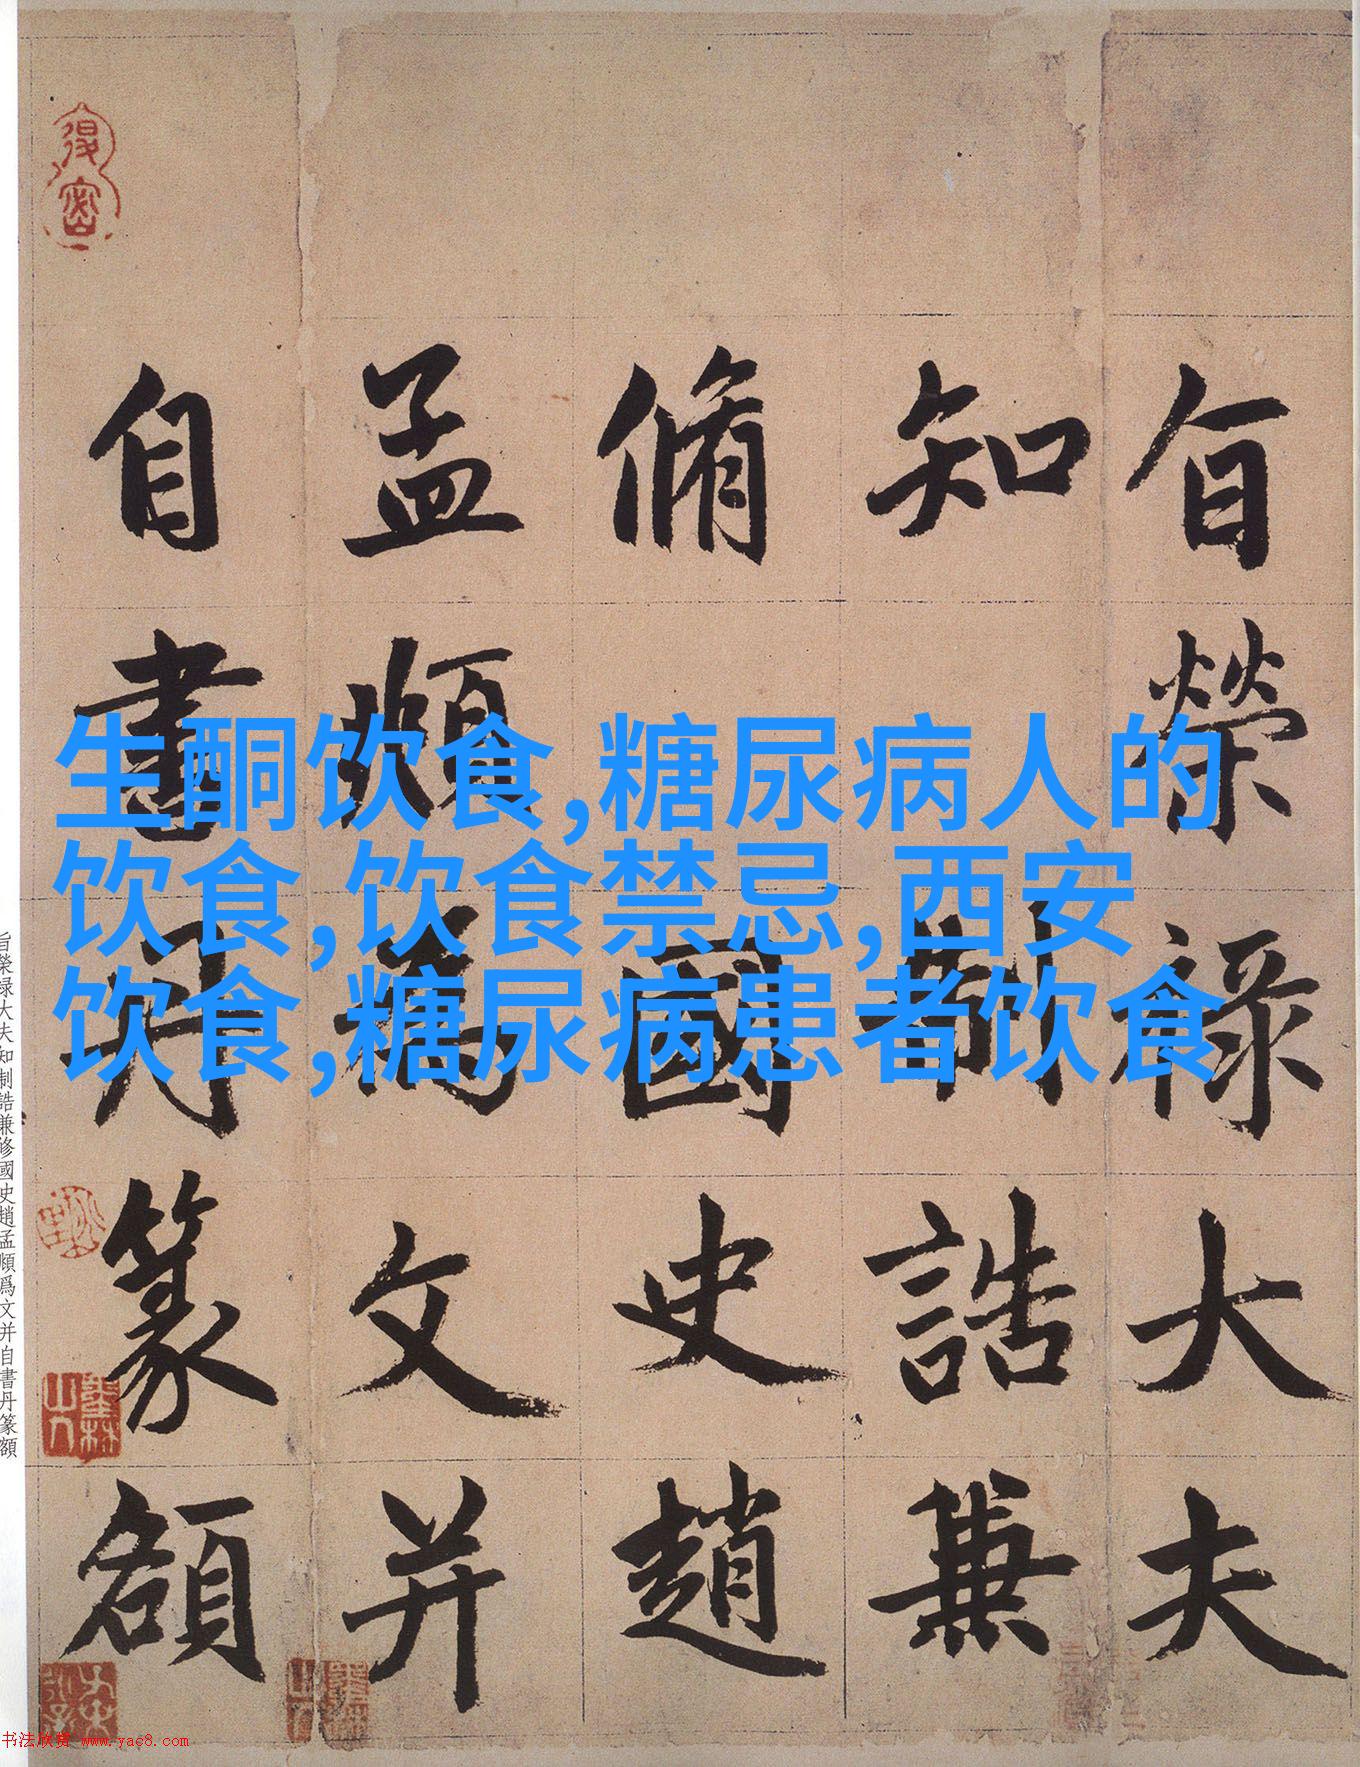 旨榮祿大夫
知制誥兼
脩國史趙
孟頫為文并
自書丹篆額
生酮饮食,糖尿病人的
饮食,饮食禁忌,西安
饮食,糖尿病患者饮食
旨榮禄大夫知制誥兼修國史趙孟頫爲文并自書丹篆額
书法欣赏 www.yac8.com